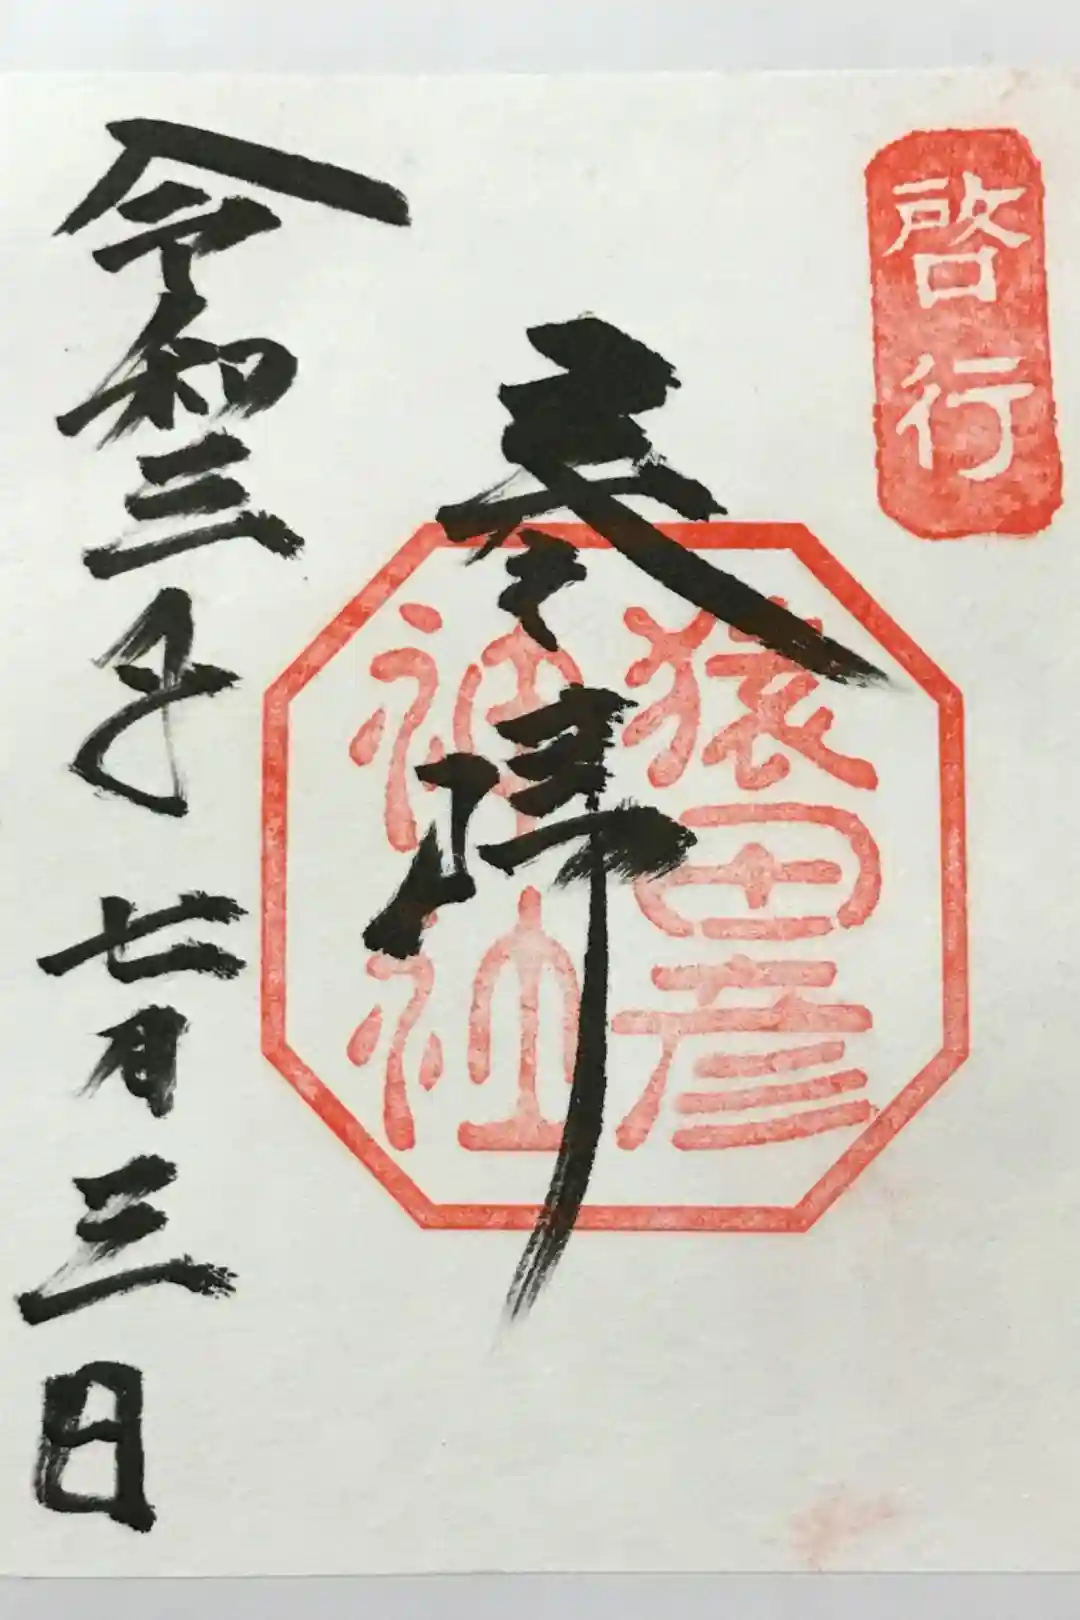 啓行
奉拝
猿田彦
神社
令和三年七月三日